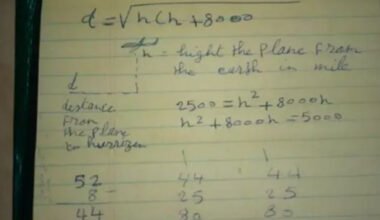 d = √h(h + 8000
h = hight the plane from
the earth in mile
d
distance
From
the plane
to horrizen
2500 = h² + 8000h
h² + 8000h = 5000
52 44 44
8 25 25
44 80 80